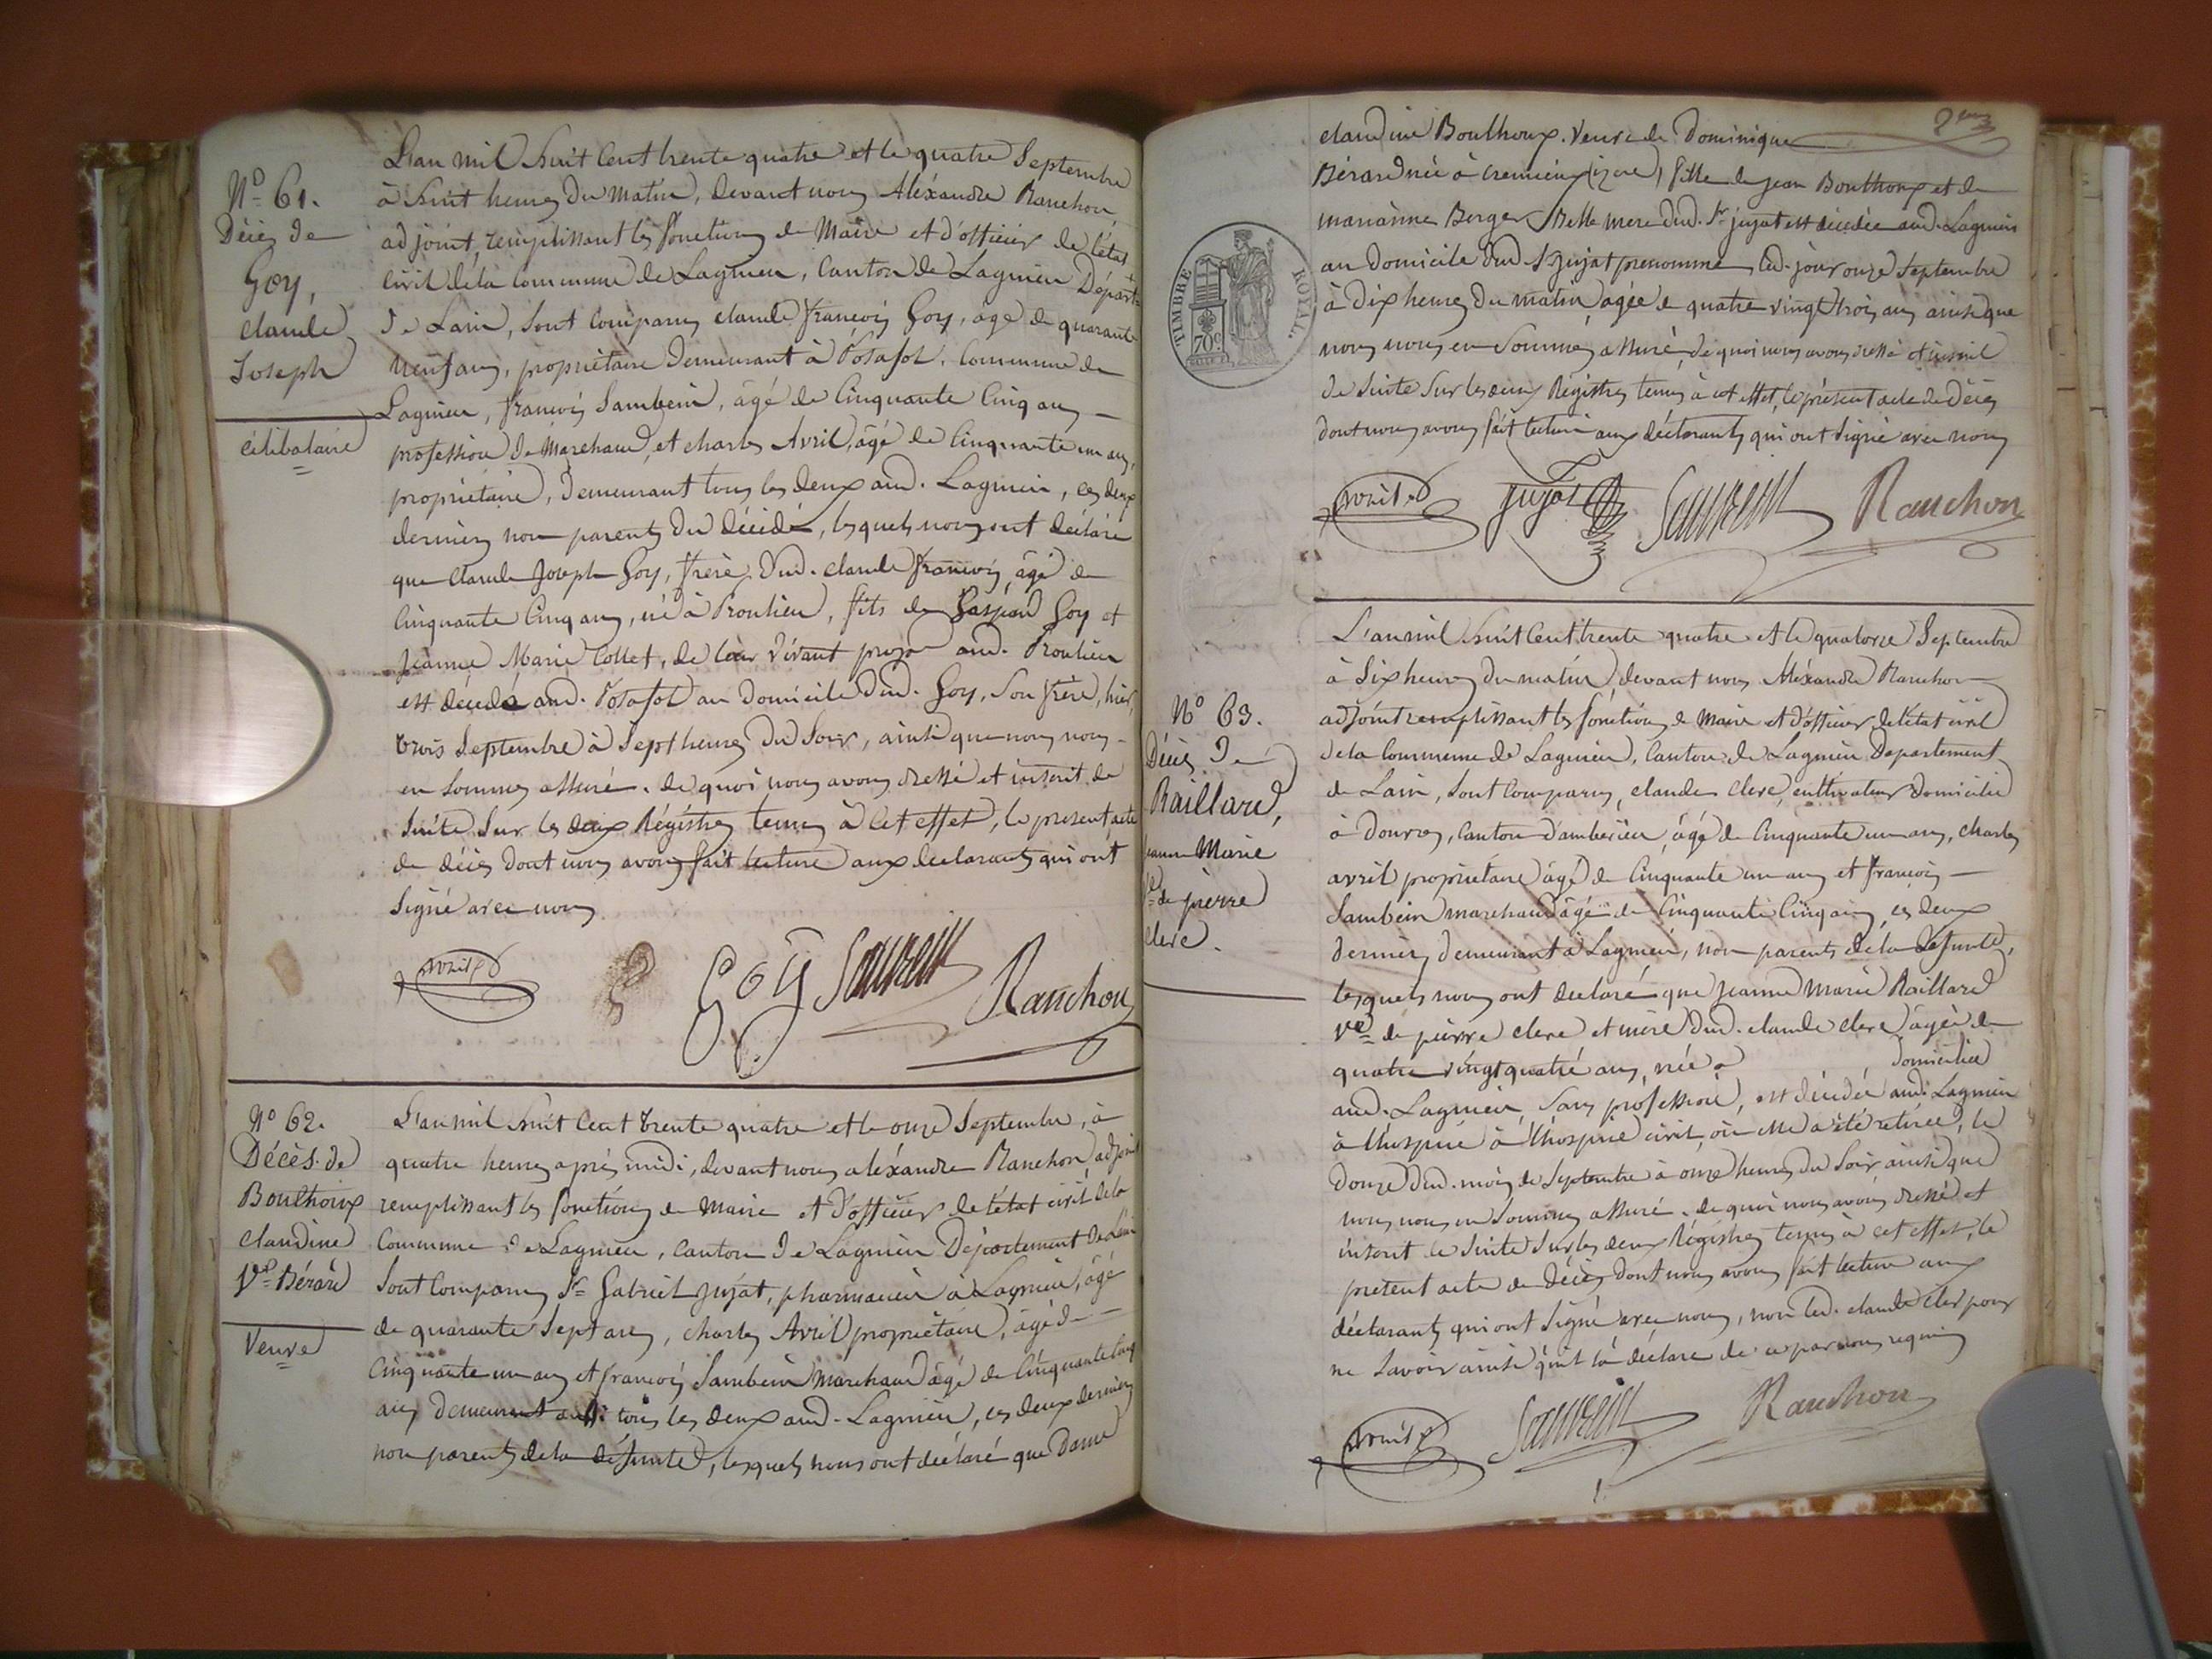 N.º 61.
Décès de
Goy,
claude
Joseph
célibataire
L'an mil huit Cent trente quatre et le quatre Septembre
à huit heures du Matin, devant nous Aléxandre Ranchon
adjoint, remplissant les fonctions de Maire et d'officier de l'état
Civil de la Commune de Lagnieu, Canton de Lagnieu Départ.t
de Lain, Sont Comparus claude françois Goy, âgé de quarante
neuf ans, propriétaire demeurant à Posafol, Commune de
Lagnieu, françois Sambein, âgé de Cinquante Cinq ans
profession de Marchand, et charles Avril, âgé de Cinquante un ans,
propriétaire, demeurant tous les deux aud. Lagnieu, ces deux
derniers non parents du décédé, lesquels nous ont déclaré
que Claude Joseph Goy, frère dud. claude françois, âgé de
Cinquante Cinq ans, né à Proulieu, fils de Gaspard Goy et
Jeanne Marie Collet, de leur vivant prop.re aud. Proulieu
est décédé aud. Posafol au domicile dud. Goy, Son frère, hier,
trois Septembre à Sept heures du Soir, ainsi que nous nous
en Sommes assuré. de quoi nous avons dressé et inscrit de
Suite Sur les deux Régistres tenus à Cet effet, le présent acte
de décès dont nous avons fait lecture aux declarants qui ont
Signé avec nous
avril Goy Sambein Ranchon
Nº 62.
Décès de
Bouthoux
claudine
Ve Bérard
Veuve
L'an mil huit Cent trente quatre et le onze Septembre, à
quatre heures après midi, devant nous aléxandre Ranchon, adjoint
remplissant les fonctions de Maire et d'officier de l'état civil de la
Commune de Lagnieu, Canton de Lagnieu Département de Lain
Sont Comparus Sr Gabriel Jujat, pharmacien à Lagnieu, âgé
de quarante Sept ans, charles Avril propriétaire, âgé de
Cinquante un ans et françois Sambein Marchand âgé de Cinquante Cinq
ans, demeurant tous les deux aud. Lagnieu, ces deux derniers
non parents de la défunte, lesquels nous ont déclaré que Dame
claudine Bouthoux. Veuve de Dominique
Bérard née à Cremieux (izere), fille de Jean Bouthoux et de
marianne Berger, Belle mere dud. Sr jujat est décédée aud. Lagnieu
au domicile dud. S. Jujat prenommé led. jour onze Septembre
à dix heures du matin, agée de quatre vingt trois ans ainsi que
nous nous en Sommes assuré, de quoi nous avons dressé et inscrit
de Suite Sur les deux Régistres tenus à cet effet, le présent acte de décès
dont nous avons fait lecture aux déclarants qui ont Signé avec nous
avril Jujat Sambein Ranchon
TIMBRE ROYAL
70c
Nº 63.
Décès De
Raillard,
Jeanne Marie
Ve de pierre
Clerc.
L'an mil huit Cent trente quatre et le quatorze Septembre
à Six heures du matin, devant nous Aléxandre Ranchon
adjoint remplissant les fonctions de Maire et d'officier de l'état civil
de la Commune de Lagnieu, Canton de Lagnieu Departement
de Lain, Sont Comparus, claude Clerc, cultivateur domicilié
à douvres, Canton d'amberieu, âgé de Cinquante un ans, charles
avril propriétaire âgé de Cinquante un ans et françois
Sambein marchand âgé de Cinquante Cinq ans, ces deux
derniers demeurant à Lagnieu, non parents de la defunte,
lesquels nous ont declaré que Jeanne Marie Raillard
Ve de pierre clerc et mère dud. claude clerc âgée de
quatre vingt quatre ans, née à domiciliée
aud. Lagnieu, Sans profession, est décédée aud. Lagnieu
à l'hospice à l'hospice civil, où elle a été retirée, le
douze dud. mois de Septembre à onze heures du Soir ainsi que
nous nous en Sommes assuré. de quoi nous avons dressé et
inscrit de Suite Sur les deux Régistres tenus à cet effet, le
présent acte de décès dont nous avons fait lecture aux
déclarants qui ont Signé avec nous, non led. claude Clerc pour
ne Savoir ainsi qu'il l'a déclaré de ce par nous requis
avril Sambein Ranchon